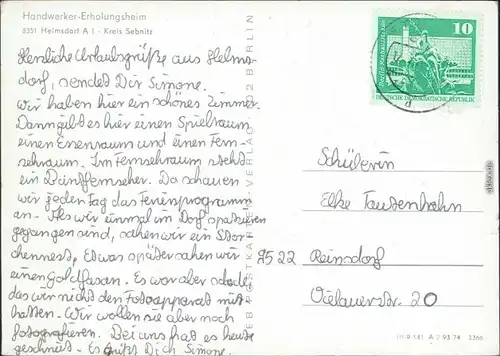 Handwerker-Erholungsheim
8351 Helmsdorf A 1 - Kreis Sebnitz
Herzliche Urlaubsgrüße aus Helms-
dorf, sendet Dir Simone.
Wir haben hier ein schönes Zimmer.
Dann gibt es hier einen Spielraum
einen Essenraum und einen Fern-
sehraum. Im Fernsehraum steht
ein Buntfernseher. Da schauen
wir jeden Tag das Ferienprogramm
an. Als wir einmal im Dorf spazieren
gegangen sind, sahen wir ein Stor-
chennest. Etwas später sahen wir
einen Goldfasan. Es war aber schade,
das wir nicht den Fotoapparat mit
hatten. Wir wollen sie aber noch
fotografieren. Bei uns hat es heute
geschneit. Es grüßt Dich Simone.
VERLAG BERLIN
10
DEUTSCHE DEMOKRATISCHE REPUBLIK
Schülerin
Elke Tausendhahn
9522 Reinsdorf
Vielauerstr. 20
III-9-141 A 2 93 74 3366